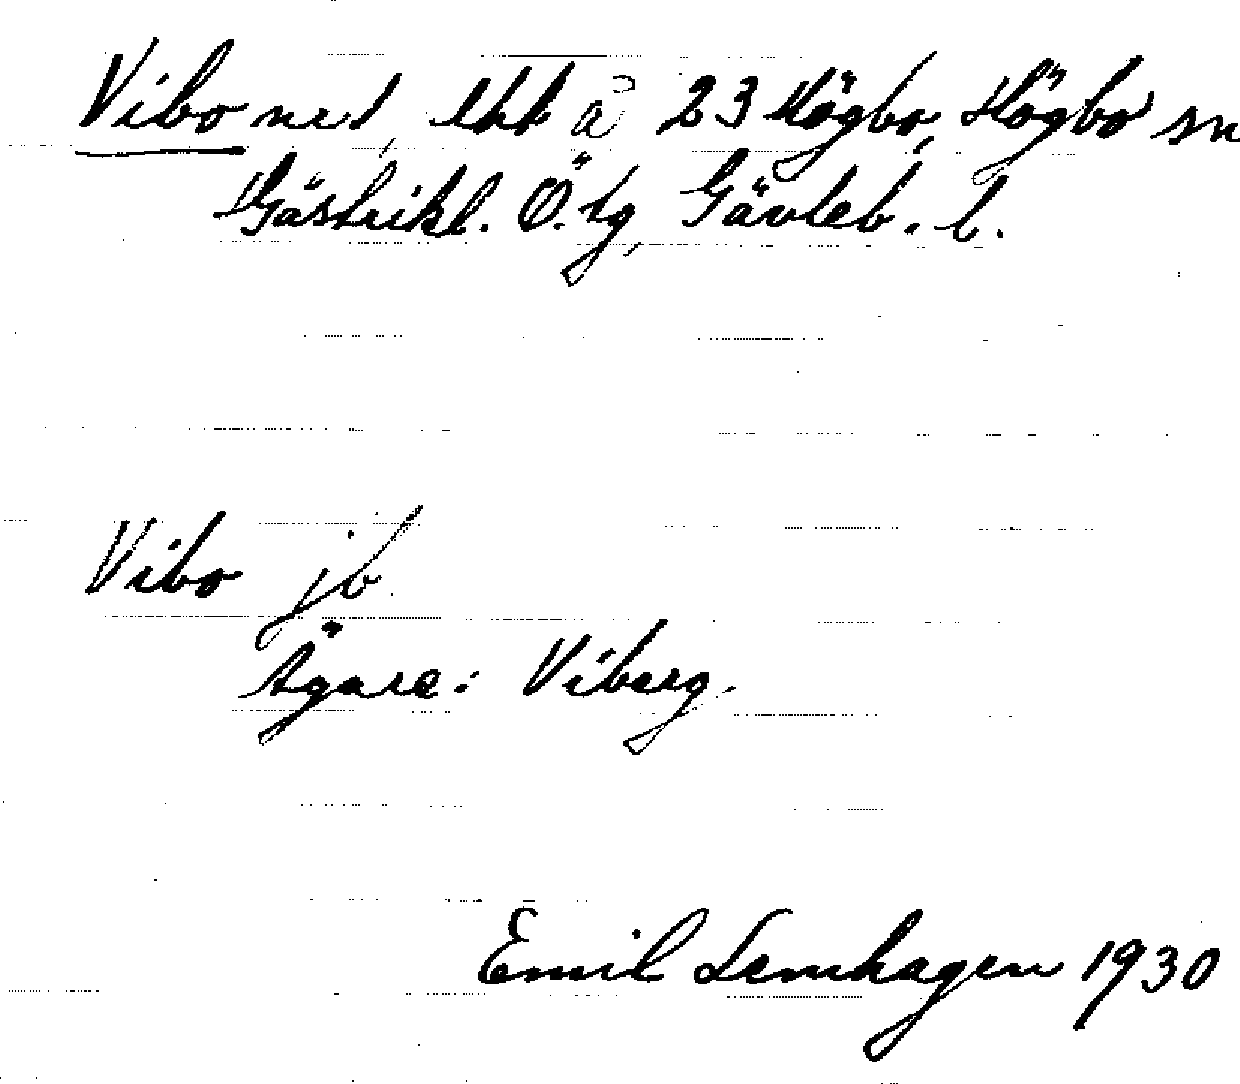 Vibo ned, lht å 23 Högbo, Högbo sn
Gästrikl. Ö. tg, Gävleb. l.
Vibo jb.
Ägare: Viberg.
Emil Lemhagen 1930